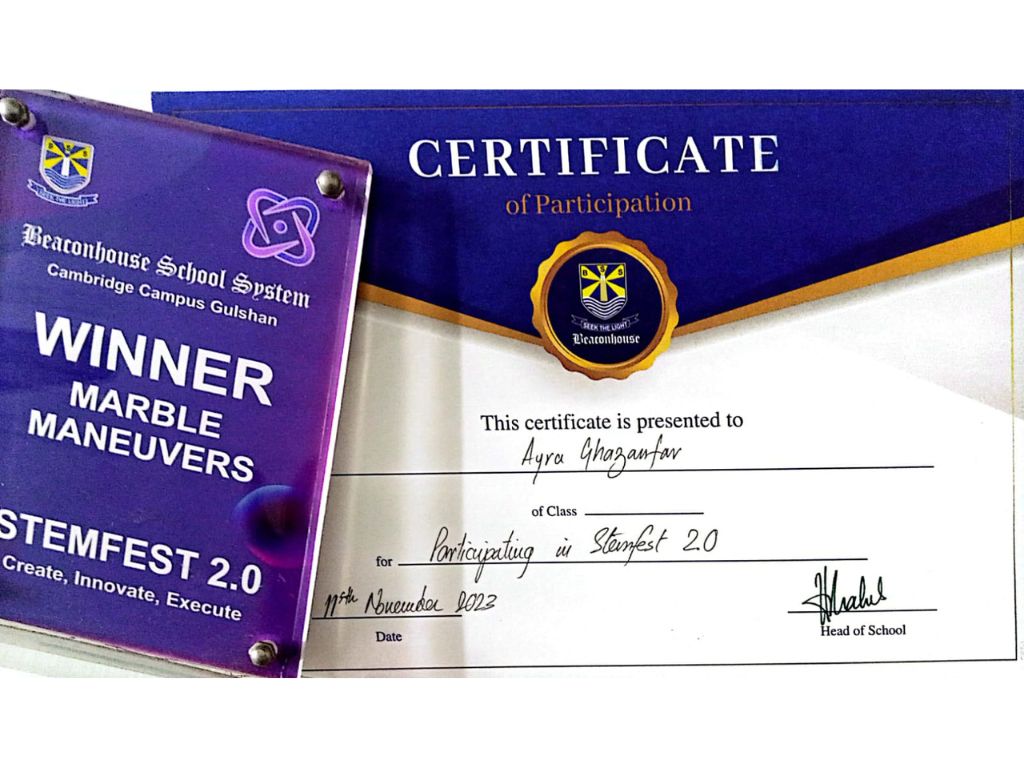 BSS
SEEK THE LIGHT
Beaconhouse School System
Cambridge Campus Gulshan
WINNER
MARBLE
MANEUVERS
STEMFEST 2.0
Create, Innovate, Execute
CERTIFICATE
of Participation
BSS
SEEK THE LIGHT
Beaconhouse
This certificate is presented to
Ayra Ghazanfar
of Class
for Participating in Stemfest 2.0
November 2023
Date
Head of School